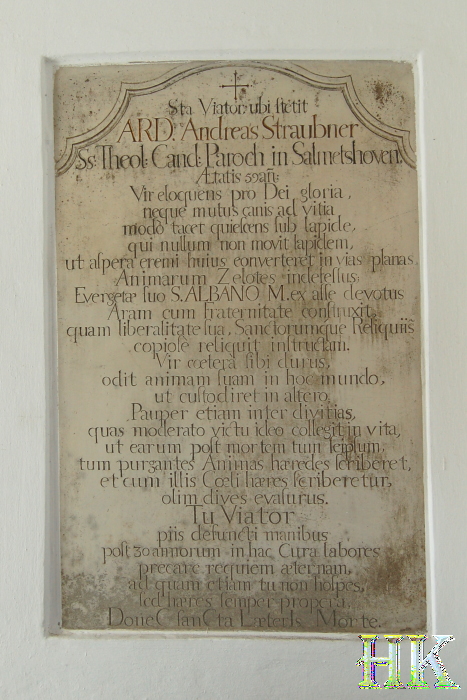 Sta Viator: ubi stetit
ARD: Andreas Straubner
Ss: Theol: Cand: Paroch in Salmetshoven.
Ætatis 59 añ:
Vir eloquens pro Dei gloria,
neque mutus canis ad vitia
modo tacet quiescens sub lapide,
qui nullum non movit lapidem,
ut aspera eremi huius converteret in vias planas.
Animarum Zelotes indefessus;
Evergetæ suo S. ALBANO M. ex asse devotus
Aram cum Fraternitate construxit,
quam liberalitate sua, Sanctorumque Reliquiis
copiose reliquit instructam.
Vir cœtera sibi durus,
odit animam suam in hoc mundo,
ut custodiret in altero.
Pauper etiam inter divitias,
quas moderato victu ideo collegit in vita,
ut earum post mortem tum seipsum;
tum purgantes Animas hæredes scriberet,
et cum illis Cœli hæres scriberetur,
olim dives evasurus.
Tu Viator
piis defuncti manibus
post 30 annorum in hac Cura labores
precare requiem æternam,
ad quam etiam tu non hospes,
sed hæres semper propera,
DoneC sanCta
Morte.
HK